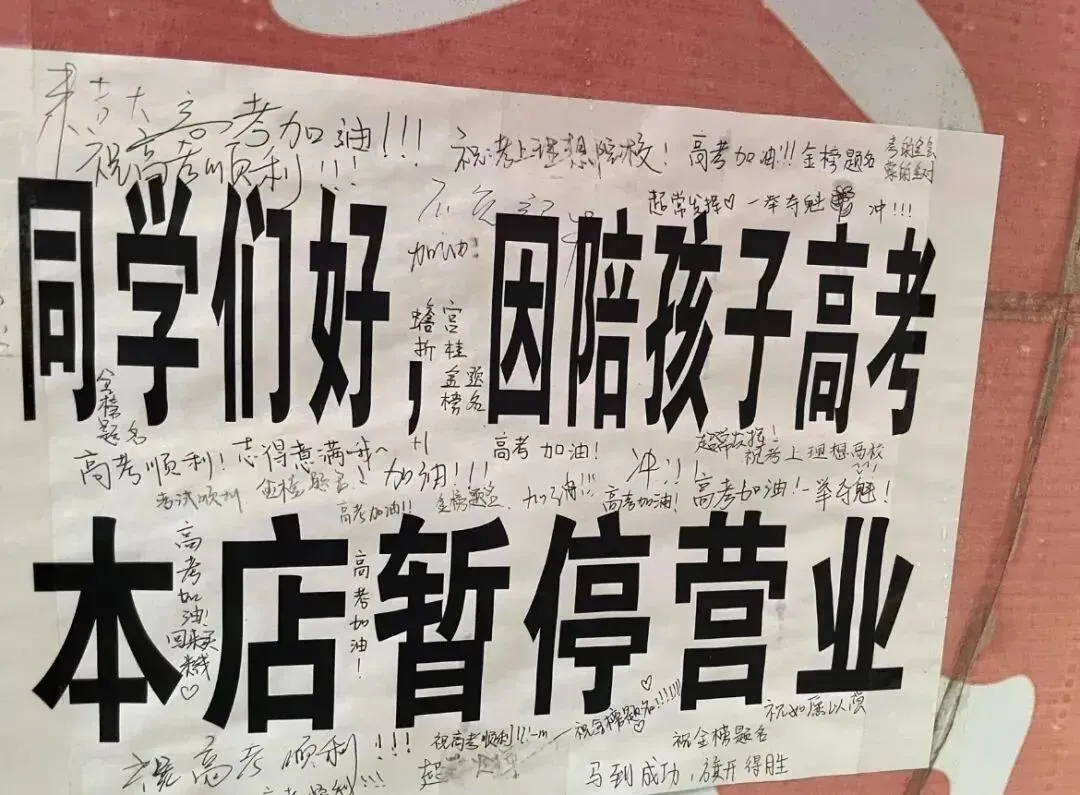 高考加油!!!
祝高考顺利!!!
祝考上理想院校!
高考加油!!!金榜题名
超常发挥♡ 一举夺魁 冲!!!
加油!
同学们好,因陪孩子高考
蟾宫
折桂
金题
榜名
金榜题名
+1
高考加油!
超常发挥!
高考顺利!志得意满哦~
加油!!!
冲!!!
祝考上理想高校
考试顺利
金榜题名!
高考加油!!
金榜题名
加油!!!
高考加油!
高考加油!一举夺魁!
本店暂停营业
高考加油!
回来买
♡
高考加油!
祝高考顺利!!!
祝高考顺利!!!
祝金榜题名!!!!!!
♡
祝如愿以偿
祝金榜题名
马到成功,旗开得胜